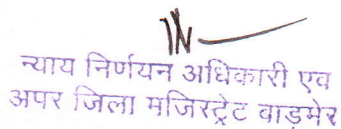 न्याय निर्णयन अधिकारी एव
अपर जिला मजिस्ट्रेट बाड़मेर